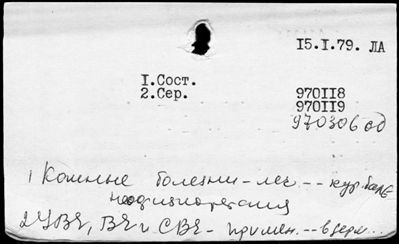 15.I.79. ЛА
I.Сост.
2.Сер. 970II8
970II9
970306 од
1 Кожные болезни – леч. --
неофизиотерапия
2 УВЧ, ВЧ и СВЧ – примен. -- в дерм...